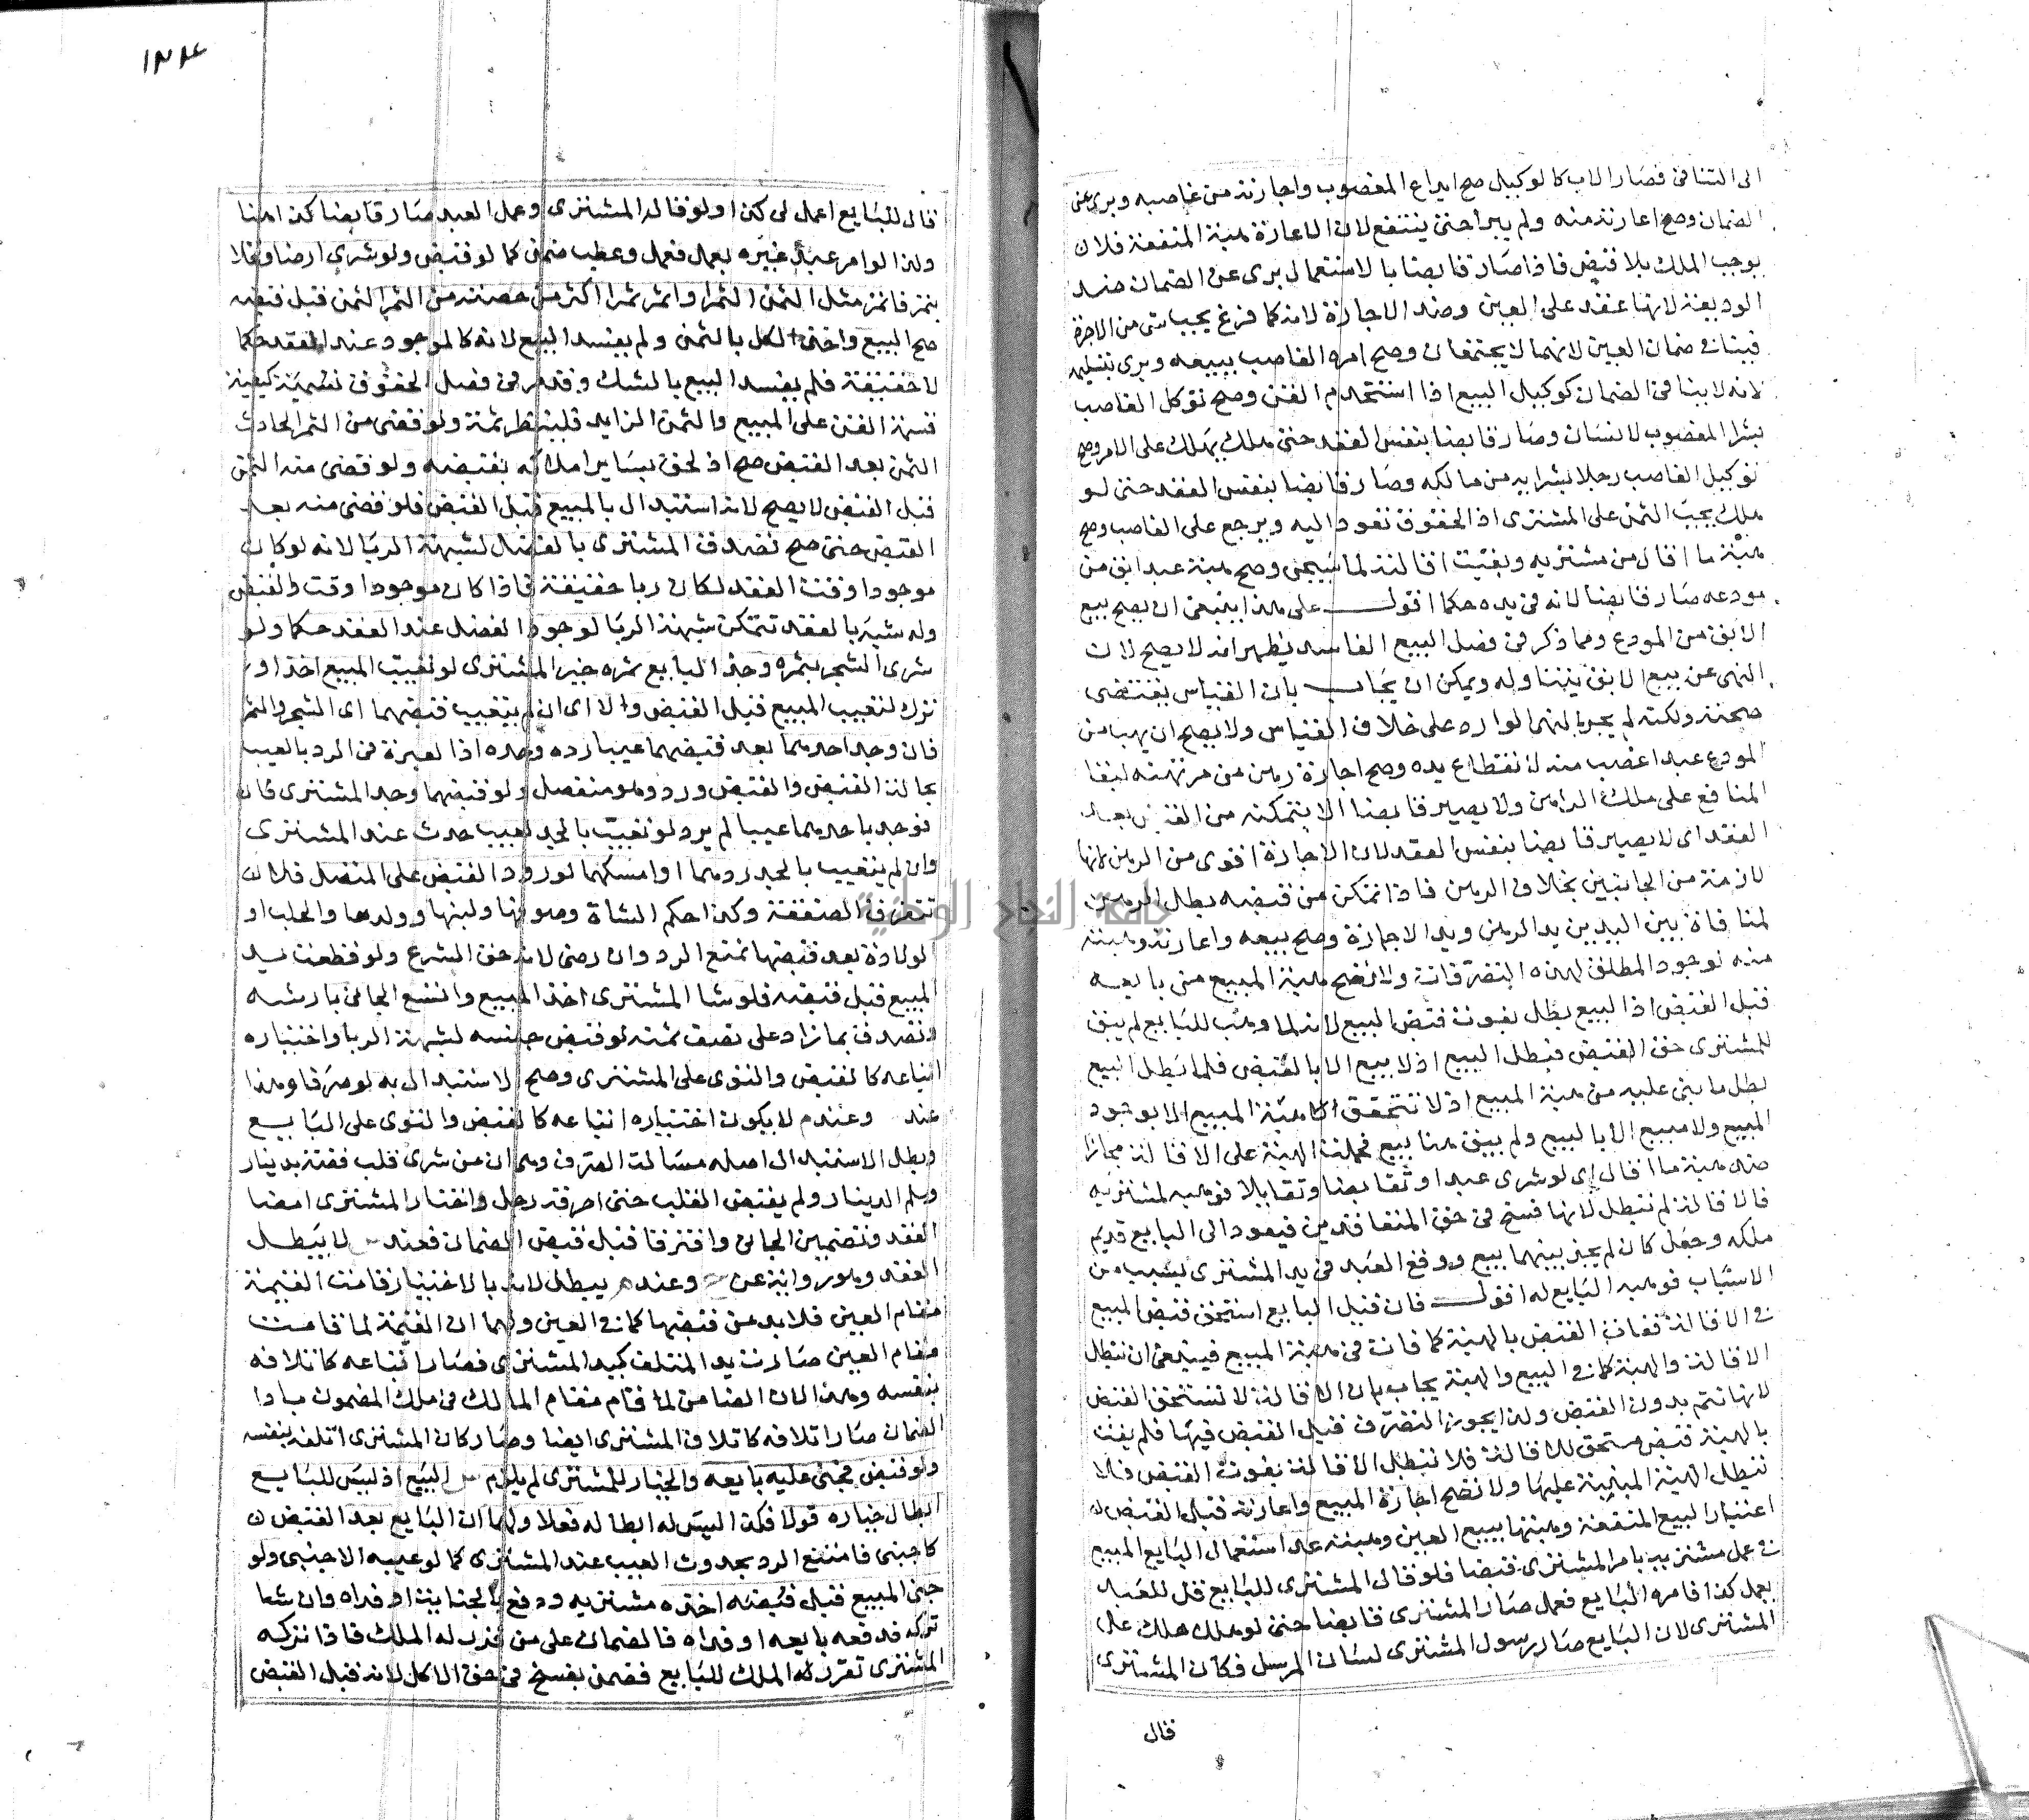 الى التنافى فصار الاب كالوكيل صح ايداع المغصوب واجارته من غاصبه وبرى عن
الضمان وصح اعارته منه ولم يبرا حتى ينتفع لان الاعارة هبة المنفعة فلان
يوجب الملك بلا قبض فاذا صار قابضا بالاستعمال برى عن الضمان ضد
الوديعة لانها عقد على العين وضد الاجازة لانه كما فرغ يجب شى من الاجرة
فينافى ضمان العين لانهما لا يجتمعان وصح امره الغاصب ببيعه وبرى بتسليمه
لانه لا ينافى الضمان كوكيل البيع اذا استخدم القن وصح توكل الغاصب
بشرا المغصوب لانسان وصار قابضا بنفس العقد حتى هلك يهلك على الامر وصح
توكيل الغاصب رجلا بشرايه من مالكه وصار قابضا بنفس العقد حتى لو
هلك يجب الثمن على المشترى اذ الحقوق تعود اليه ويرجع على الغاصب وصح
هبة ما اقال من مشتريه وبقيت اقالته لما سيجى وصح هبة عبد ابق من
مودعه صار قابضا لانه فى يده حكما اقول على هذا ينبغى ان يصح بيع
الابق من المودع ومما ذكر فى فصل البيع الفاسد يظهر انه لا يصح لان
النهى عن بيع الابق يتناوله ويمكن ان يجاب بان القياس يقتضى
صحته ولكنه لم يجز بالنهى الوارد على خلاف القياس ولا يصح ان يهب من
المودع عبدا غصب منه لانقطاع يده وصح اجارة رهن من مرتهنه لبقا
المنافع على ملك الراهن ولا يصير قابضا الا بتمكنه من القبض بعد
العقد اى لا يصير قابضا بنفس العقد لان الاجارة اقوى من الرهن لانها
لازمة من الجانبين بخلاف الرهن فاذا تمكن من قبضه بطل الرهن
لمنافاة بين اليدين يد الرهن ويد الاجارة وصح بيعه واعارته وهبته
منه لوجود المطلق لهذه التصرفات ولا تصح هبة المبيع من بايعه
قبل القبض اذ البيع بطل بفوت قبض المبيع لانه لما وهب للبايع لم يبق
للمشترى حق القبض فبطل البيع اذ لا بيع الا بالقبض فلما بطل البيع
بطل ما بنى عليه من هبة المبيع اذ لا تتحقق الا هبة المبيع الا بوجود
المبيع ولا مبيع الا بالبيع ولم يبق هنا بيع فجعلت الهبة على الاقالة مجازا
ضد هبة ما اقال اى لو شرى عبدا وتقابضا وتقايلا فوهبه لمشتريه
فالاقالة لم تبطل لانها فسخ فى حق المتعاقدين فيعود الى البايع قديم
ملكه وجعل كان لم يجر بينهما بيع ووقع العبد فى يد المشترى بسبب من
الاسباب فوهبه البايع له اقول فان قيل البايع استحق قبض المبيع
فى الاقالة ففات القبض بالهبة كما فات فى هبة المبيع فينبغى ان تبطل
الاقالة والهبة كما فى البيع والهبة يجاب بان الاقالة لا تستحق القبض
لانها تتم بدون القبض ولذا يجوز التصرف قبل القبض فيها فلم يفت
بالهبة قبض مستحق للاقالة فلا تبطل الاقالة بفوت القبض فلا
تبطل الهبة المبنية عليها ولا تصح اجارة المبيع واعارته قبل القبض لان
اعتبارا لبيع المنفعة وهبتها ببيع العين وهبته عد استعمال البايع المبيع
فى عمل مشتريه بامر المشترى قبضا فلو قال المشترى للبايع قل للعبد
يعمل كذا فامره البايع فعمل صار المشترى قابضا حتى لو هلك هلك على
المشترى لان البايع صار رسول المشترى لسان المرسل فكان المشترى
قال
١٢٤
قال للبايع اعمل لى كذا ولو قال له المشترى وعمل العبد صار قابضا كذا هنا
ولذا لو امر عبد غيره بعمل فعمل وعطب ضمن كما لو قبض ولو شرى ارضا ونخلا
بتمر فاثمر مثل الثمن التمر او اثمر تمرا اكثر من حصته من التمر الثمن قبل قبضه
صح البيع واخذ الكل بالثمن ولم يفسد البيع لانه كالموجود عند العقد حكما
لا حقيقة فلم يفسد البيع بالشك وقد مر فى فصل الحقوق تسمية كيفية
قسمة الثمن على المبيع والثمن الزايد فلينظر ثمة ولو قضى من التمر الحادث
الثمن بعد القبض صح اذ لحق بساير املاكه بقبضه ولو قضى منه الثمن
قبل القبض لا يصح لانه استبدال بالمبيع قبل القبض فلو قضى منه بعد
القبض حتى صح تصدق المشترى بالفضل لشبهة الربا لانه لو كان
موجودا وقت العقد لكان ربا حقيقة فاذا كان موجودا وقت القبض
وله شبه بالعقد تتمكن شبهة الربا لوجود الفضل عند العقد حكما ولو
شرى الشجر بثمره وجذ البايع ثمره خير المشترى لو تعيب المبيع اخذ او
ترك لتعيب المبيع قبل القبض والا اى ان لم يتعيب قبضهما اى الشجر والثمر
فان وجد احدهما بعد قبضهما عيبا رده وحده اذ العبرة فى الرد بالعيب
بحالة القبض والقبض ورد وهو منفصل ولو قبضهما وجد المشترى فان
توجد باحدهما عيبا لم يرد لو تعيب بالجد لعيب حدث عند المشترى
وان لم يتعيب بالجد ردهما او امسكهما لورود القبض على المتصل فلان
تتفرق الصفقة وكذا حكم الشاة وصوفها ولبنها وولدها والحلب او
لولادة بعد قبضها تمنع الرد وان رضى لانه حق الشرع ولو قطعت يد
المبيع قبل قبضه فلو شا المشترى اخذ المبيع واتبع الجانى بارشه
وتصدق بما زاد على نصف ثمنه لو قبض جنسه لشبهة الربا واختياره
اتباعه كالقبض والتوى على المشترى وصح الاستبدال به لو صرفا وهذا
عند وعندم لا يكون اختياره اتباعه كالقبض والتوى على البايع
وبطل الاستبدال اصله مسالة الصرف وهى ان من شرى قلب فضة بدينار
وسلم الدينار ولم يقبض القلب حتى احرقه رجل واختار المشترى امضا
العقد وتضمين الجانى وافترقا قبل قبض الضمان فعند لا يبطل
العقد وهو رواية عن وعند م يبطل لانه بالاختيار قامت القيمة
مقام العين فلا بد من قبضها كما فى العين ولهما ان القيمة لما قامت
مقام العين صارت يد المتلف كيد المشترى فصار اتباعه كاتلافه
بنفسه وهذا لان الضامن لما قام مقام المالك فى ملك المضمون بادا
الضمان صار اتلافه كاتلاف المشترى ايضا وصار كان المشترى اتلفه بنفسه
ولو قبض فجنى عليه بايعه والخيار للمشترى لم يلزم البيع اذ ليس للبايع
ابطال خياره قولا فكذا ليس له ابطاله فعلا ولهما ان البايع بعد القبض
كاجنبى فامتنع الرد بحدوث العيب عند المشترى كما لو عيبه الاجنبى ولو
جنى المبيع قبل قبضه اخذه مشتريه ودفع بالجناية او فداه وان شا
تركه فدفعه بايعه او فداه فالضمان على من قرر له الملك فاذا تركه
المشترى تقرر له الملك للبايع فضمن بفسخ فى حق الاكل لانه قبل القبض